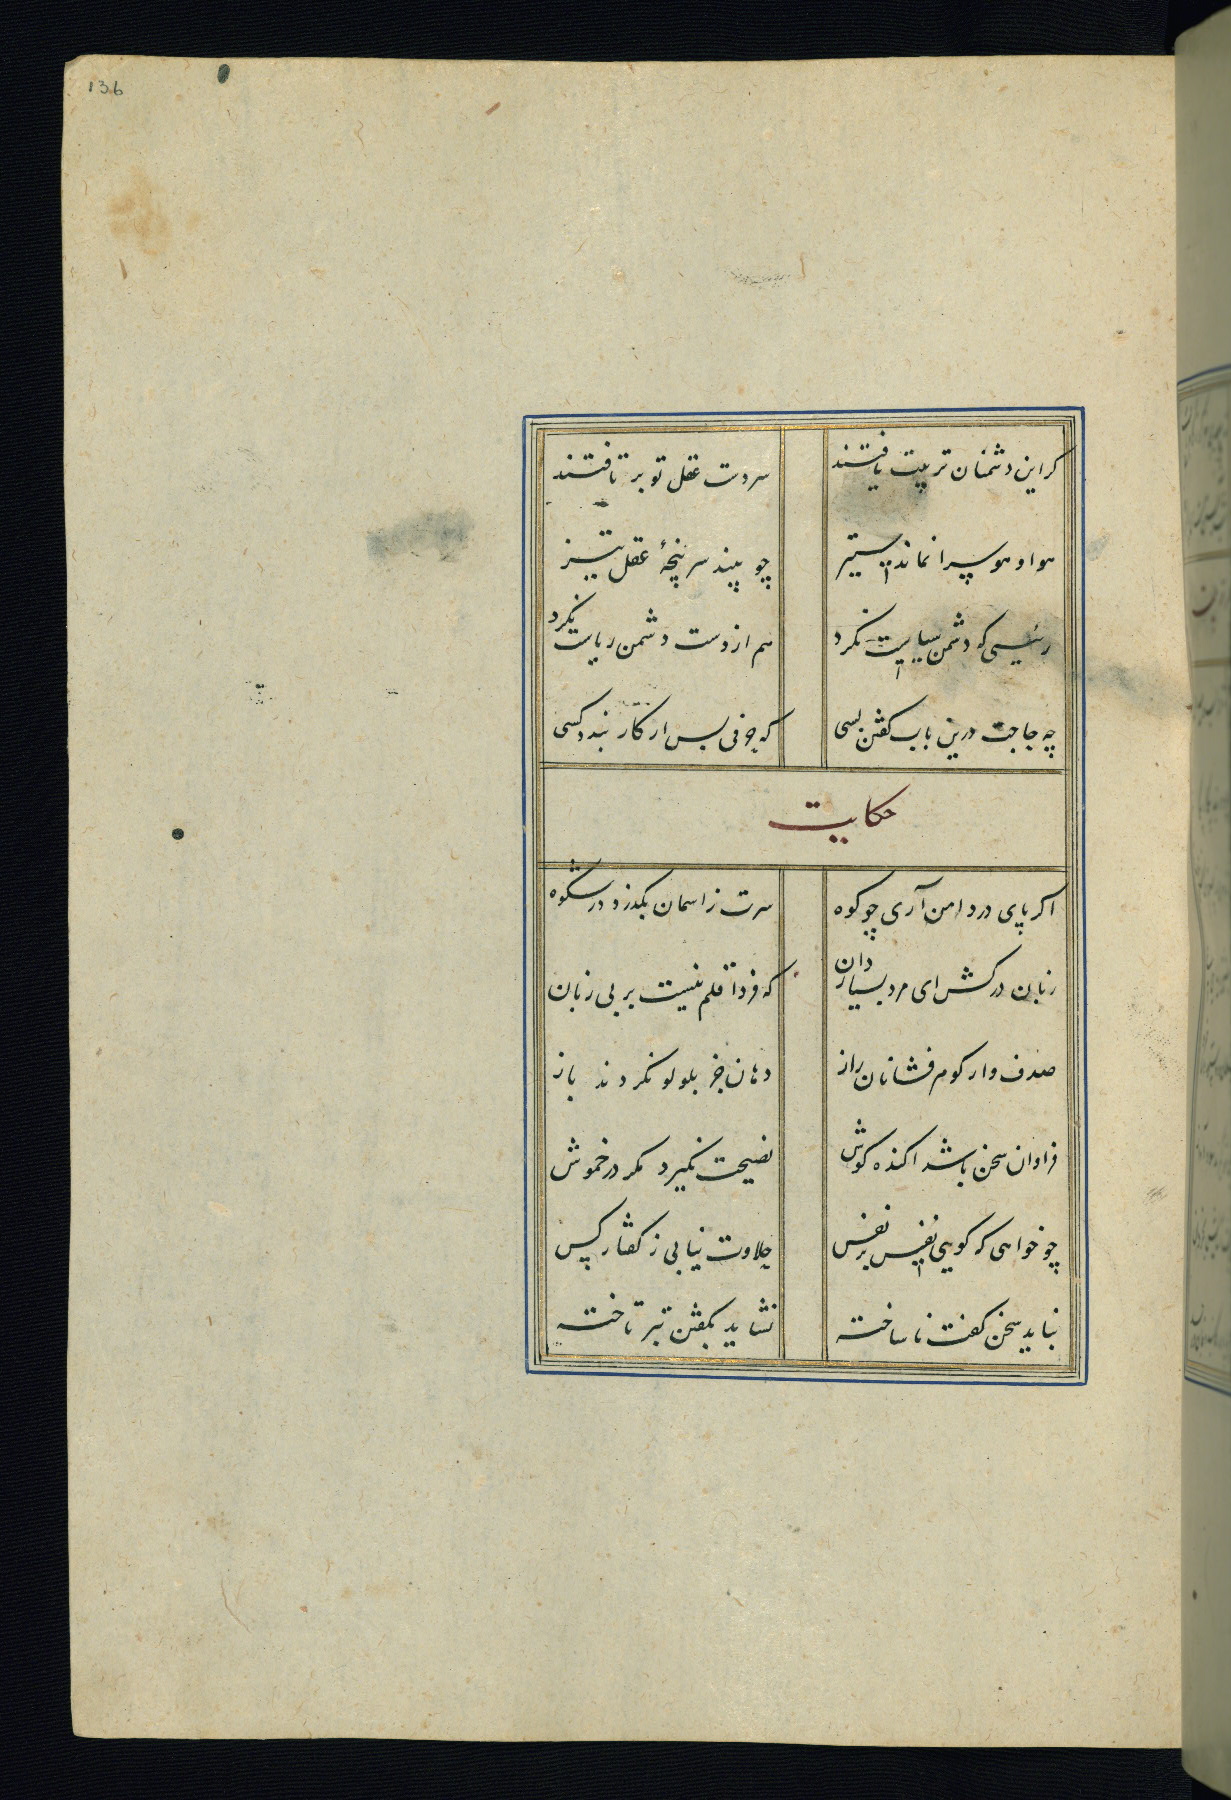 136
کر این دشمنان تربیت یافتند سر دست عقل تو بر تافتند
هوا و هوس را نماند ستیز چو بیند سر پنجهٔ عقل تیز
رئیسی که دشمن سیاست نکرد هم از دست دشمن ریاست نکرد
چه حاجت درین باب کفتن بسی که حرفی بس ار کار بندد کسی
حکایت
اکر پای در دامن آری چو کوه سرت ز اسمان بکذرد در شکوه
زبان درکش ای مرد بسیار دان که فردا قلم نیست بر بی زبان
صدف وار کوهر فشانان راز دهان جز بلولو نکردند باز
فراوان سخن باشد اکنده کوش نصیحت نکیرد مکر در خموش
چو خواهی که کویی نفس بر نفس حلاوت نیابی ز کفتار کس
نباید سخن کفت ناساخته نشاید بکفتن تبر تاخته